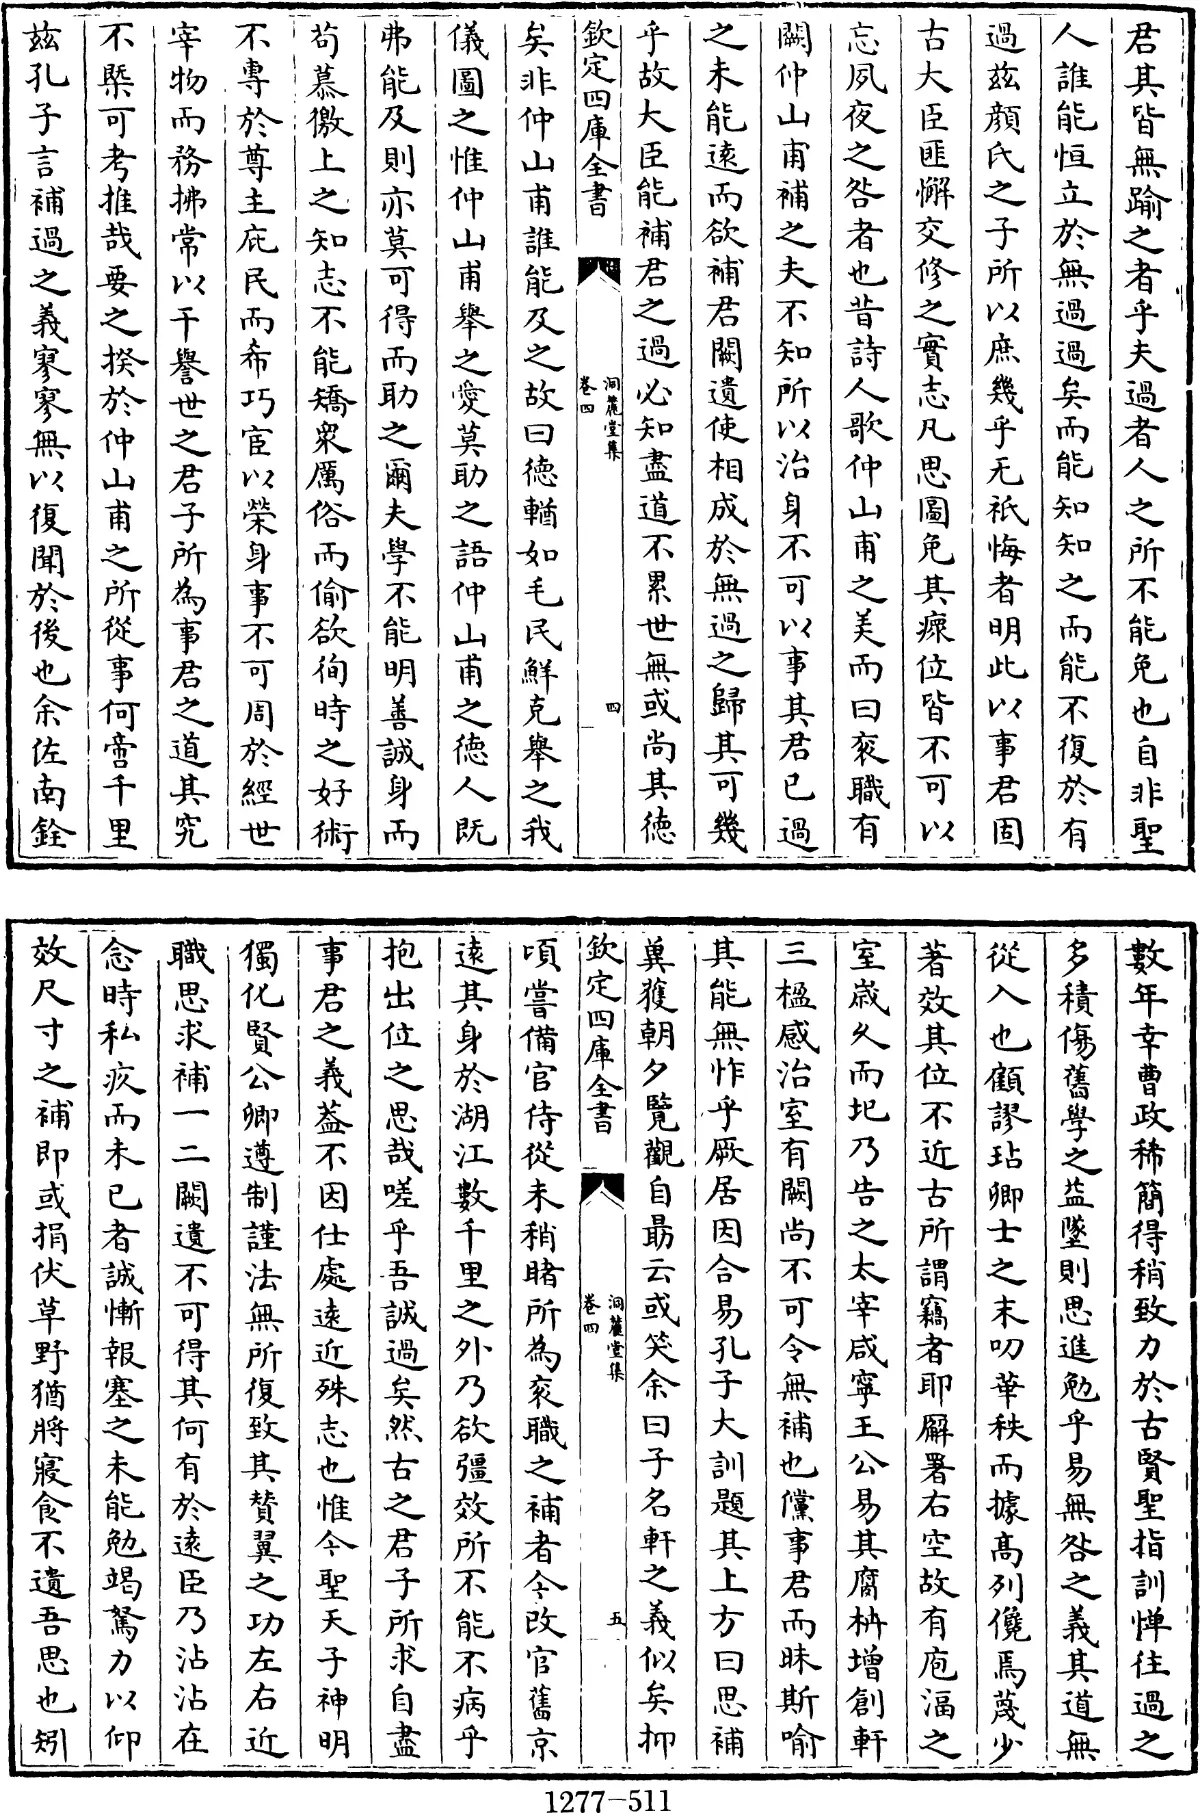 君其皆無踰之者乎夫過者人之所不能免也自非聖
人誰能恒立於無過過矣而能知知之而能不復於有
過茲顔氏之子所以庶幾乎无祇悔者明此以事君固
古大臣匪懈交修之實志凡思圖免其瘝位皆不可以
忘夙夜之咎者也昔詩人歌仲山甫之美而曰衮職有
闕仲山甫補之夫不知所以治身不可以事其君已過
之未能遠而欲補君闕遺使相成於無過之歸其可幾
乎故大臣能補君之過必知盡道不累世無或尚其德
欽定四庫全書
洞麓堂集
卷四
四
矣非仲山甫誰能及之故曰德輶如毛民鮮克舉之我
儀圖之惟仲山甫舉之愛莫助之語仲山甫之德人既
弗能及則亦莫可得而助之爾夫學不能明善誠身而
苟慕徼上之知志不能矯衆厲俗而偷欲徇時之好術
不專於尊主庇民而希巧宦以榮身事不可周於經世
宰物而務拂常以干譽世之君子所為事君之道其究
不槩可考推哉要之揆於仲山甫之所從事何啻千里
茲孔子言補過之義寥寥無以復聞於後也余佐南銓
數年幸曹政稀簡得稍致力於古賢聖指訓憚往過之
多積傷舊學之益墜則思進勉乎易無咎之義其道無
從入也顧謬玷卿士之末叨華秩而據高列儳焉蔑少
著效其位不近古所謂竊者耶廨署右空故有庖湢之
室歳久而圮乃告之太宰咸寧王公易其腐枿增創軒
三楹感治室有闕尚不可令無補也儻事君而昧斯喻
其能無怍乎厥居因合易孔子大訓題其上方曰思補
兾獲朝夕覽觀自朂云或笑余曰子名軒之義似矣抑
欽定四庫全書
洞麓堂集
卷四
五
頃嘗備官侍從未稍睹所為衮職之補者今改官舊京
遠其身於湖江數千里之外乃欲彊效所不能不病乎
抱出位之思哉嗟乎吾誠過矣然古之君子所求自盡
事君之義葢不因仕處遠近殊志也惟今聖天子神明
獨化賢公卿遵制謹法無所復致其贊翼之功左右近
職思求補一二闕遺不可得其何有於遠臣乃沾沾在
念時私疚而未已者誠慚報塞之未能勉竭駑力以仰
效尺寸之補即或捐伏草野猶將寢食不遺吾思也矧
1277-511